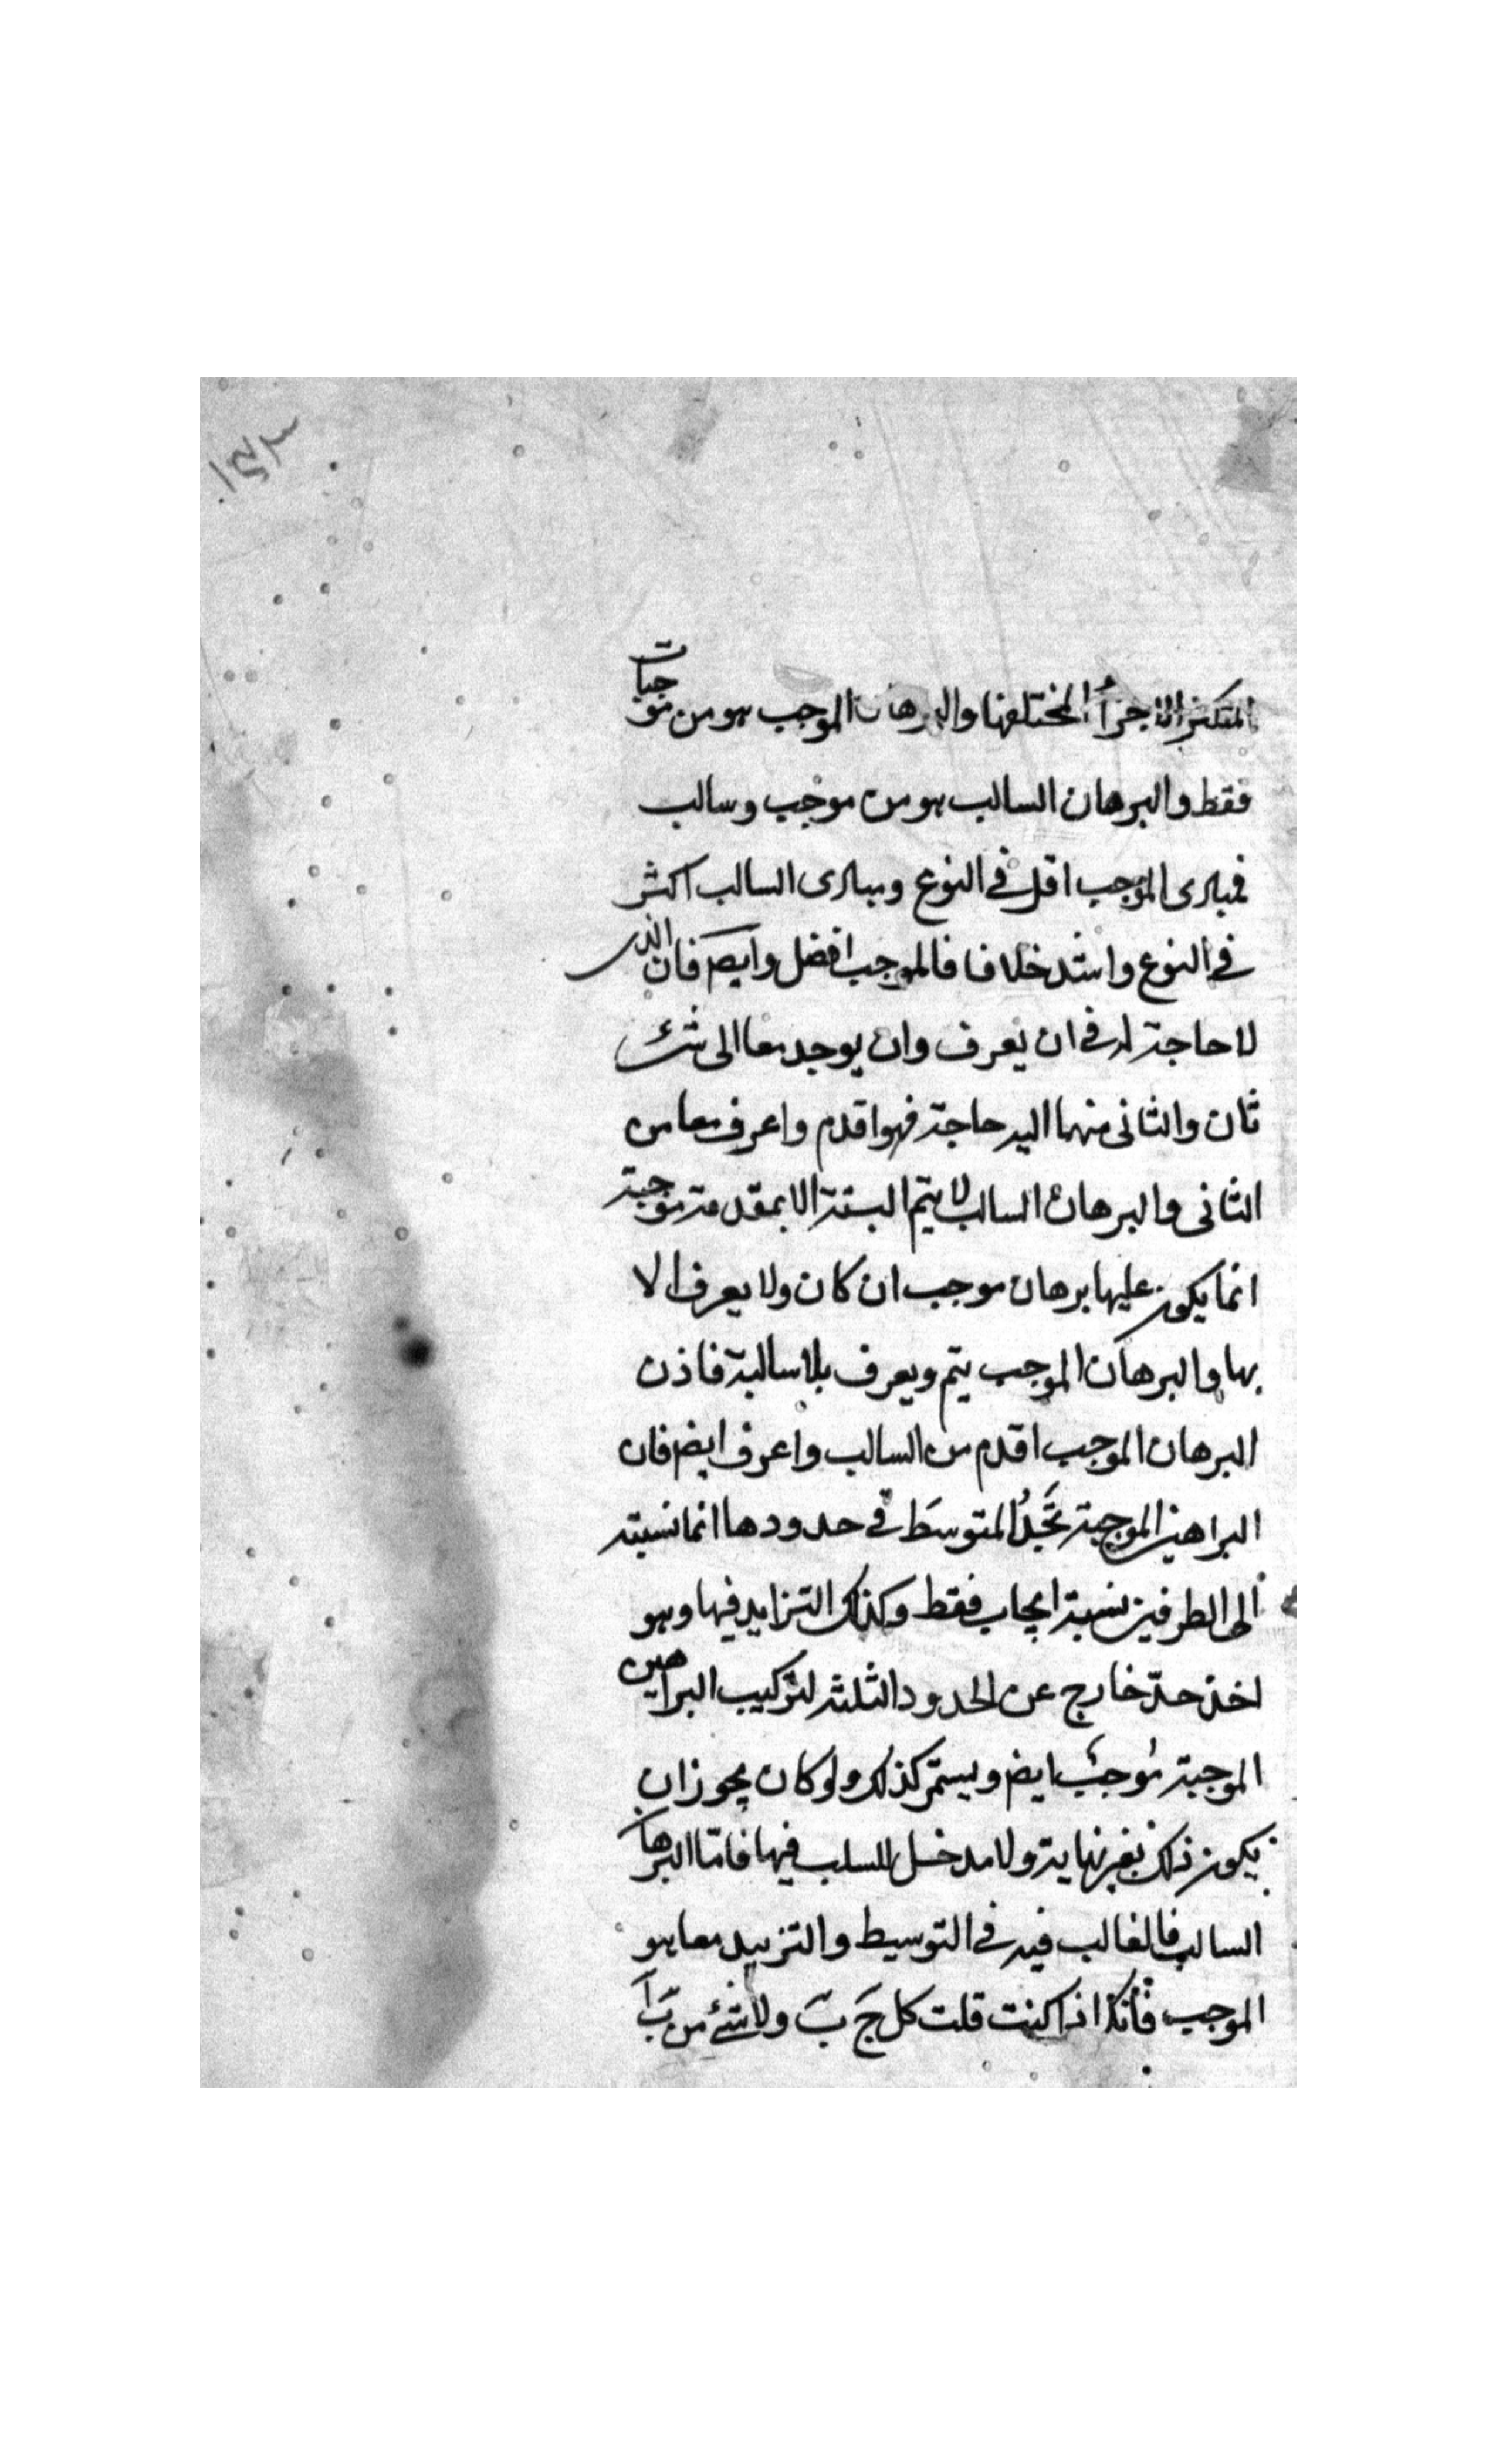 المتكثر الاجزاء المختلفها والبرهان الموجب هو من موجبات
فقط والبرهان السالب هو من موجب وسالب
فمبادى الموجب اقل فى النوع ومبادى السالب اكثر
فى النوع واشد خلافا فالموجب افضل وايضا فان الذى
لا حاجة له فى ان يعرف وان يوجد معا الى شئ
ثان والثانى منهما اليه حاجة فهو اقدم واعرف معا من
الثانى والبرهان السالب لا يتم البتة الا بمقدمة موجبة
انما يكون عليها برهان موجب ان كان ولا يعرف الا
بها والبرهان الموجب يتم ويعرف بلا سالبة فاذن
البرهان الموجب اقدم من السالب واعرف ايضا فان
البراهين الموجبة تَجِدُ المتوسطَ فى حدودها انما نسبته
الى الطرفين نسبة ايجاب فقط وكذلك التزايد فيها وهو
اخذ حدّ خارج عن الحدود الثلثة لتركيب البراهين
الموجبة موجب ايضا ويستمر كذلك ولو كان يجوز ان
يكون ذلك بغير نهاية ولا مدخل للسلب فيها فامّا البرهان
السالب فالغالب فيه فى التوسيط والتزييد معا هو
الموجب فانك اذا كنت قلت كل جَ بَ ولا شئ من بَ آ